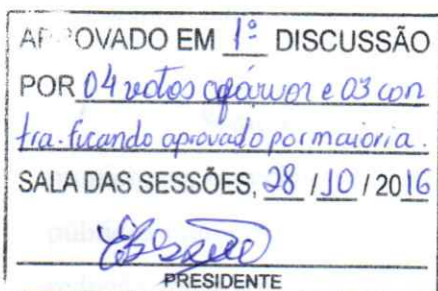 APROVADO EM 1º DISCUSSÃO
POR 04 votos a favor e 03 con
tra. ficando aprovado por maioria.
SALA DAS SESSÕES, 28 / 10 / 2016
PRESIDENTE